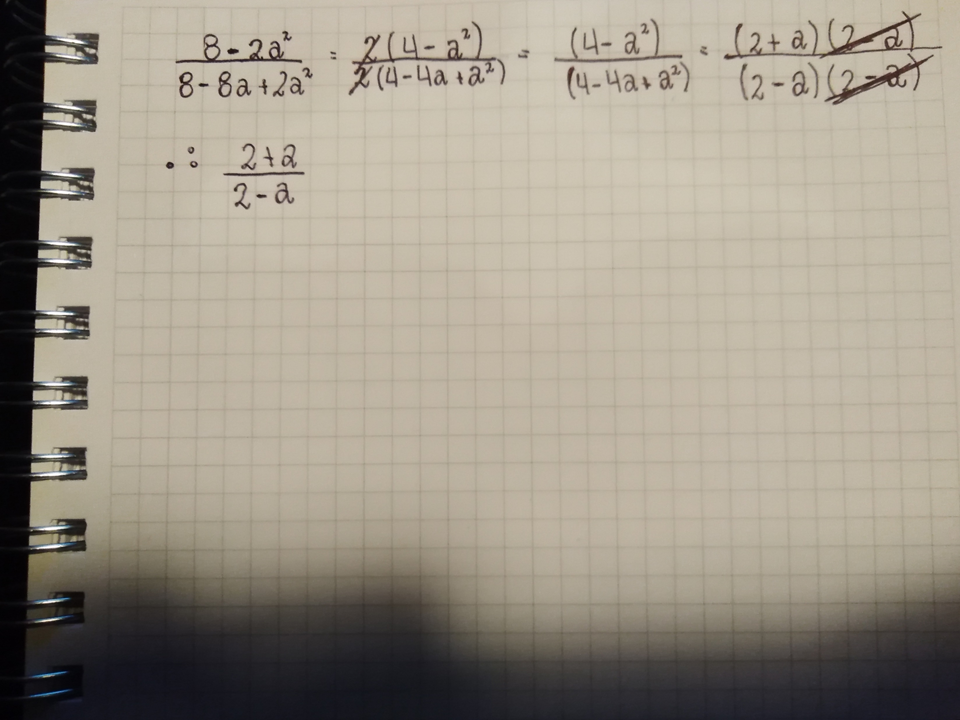 8 - 2a² / 8 - 8a + 2a² = 2(4 - a²) / 2(4 - 4a + a²) = (4 - a²) / (4 - 4a + a²) = (2 + a)(2 - a) / (2 - a)(2 - a)
∴ 2 + a / 2 - a